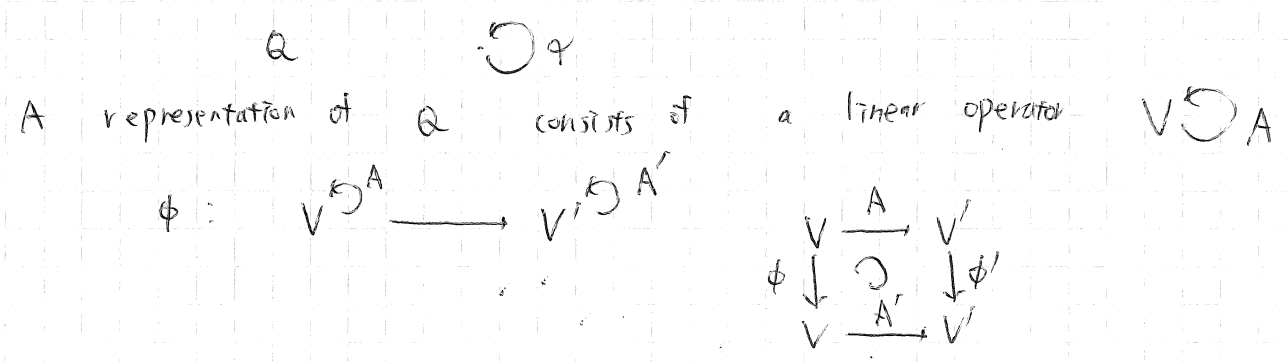 Q ↺ α
A representation of Q consists of a linear operator V ↺ A
ϕ : V ↺ A ⟶ V' ↺ A'
V A⟶ V'
ϕ ↓ ↺ ↓ ϕ'
V A'⟶ V'